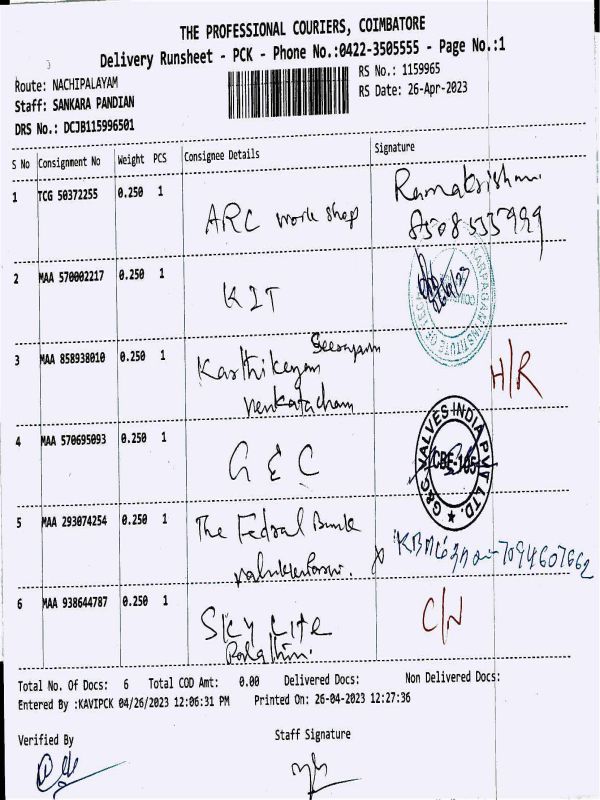 THE PROFESSIONAL COURIERS, COIMBATORE
Delivery Runsheet - PCK - Phone No.:0422-3505555 - Page No.:1
Route: NACHIPALAYAM
RS No.: 1159965
Staff: SANKARA PANDIAN
RS Date: 26-Apr-2023
DRS No.: DCJB115996501
S No Consignment No Weight PCS Consignee Details Signature
1 TCG 50372255 0.250 1
ARC work shop
Ramakrishnan
8508535999
2 MAA 570002217 0.250 1
KIT
KARPAGAM INSTITUTE OF TECH
3 MAA 858938010 0.250 1
Karthikeyan
Venkatacham
H/R
4 MAA 570695093 0.250 1
G & C
G&C VALVES INDIA PVT LTD.
CBE-105
5 MAA 293074254 0.250 1
The Fedral Bank
7094607662
6 MAA 938644787 0.250 1
Sky Lite
C/N
Total No. Of Docs: 6 Total COD Amt: 0.00 Delivered Docs: Non Delivered Docs:
Entered By :KAVIPCK 04/26/2023 12:06:31 PM Printed On: 26-04-2023 12:27:36
Verified By
Staff Signature